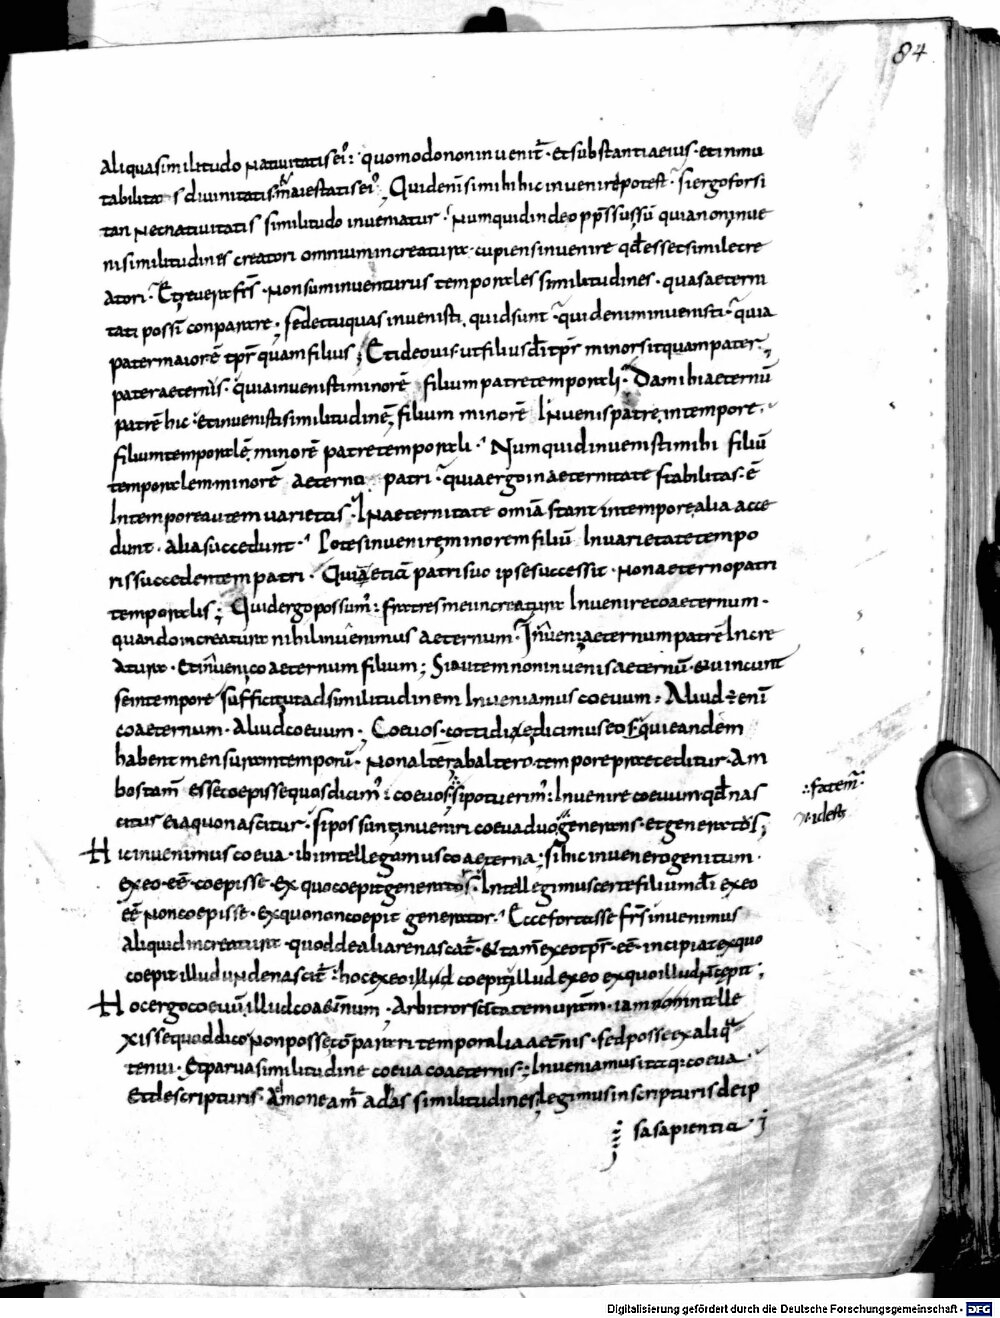 84
aliqua similitudo nativitatis ei': quomodo non invenit̄· et substantia eius· et inmu
tabilitas divinitatis· maiestatis ei'· Quid eni̅ simi hi hic invenire potest· si ergo forsi
tan nec nativitatis similitudo inveniatur· Numquid in deo pp̄ssussū quia non inve
ni similitudines creatori omnium in creatura· cupiens invenire qđ esset simile cre
atori· Et revera frs̄· non sum inventurus temporales similitudines· quas aeterni
tati possī conparare; sed et tu quas invenisti, quid sunt· quid enim invenisti· quia
pater maior ē tpr̄ quam filius; Et ideo vis· ut filius dī tpr̄ minor sit quam pater·
pater aeternus· quia invenisti minorē filium patre temporali· Da mihi aeternū
patrē hic· et invenisti similitudinē, filium minorē Invenis patre in tempore·
filium temporalē, minorē patre temporali· Numquid invenisti mihi filiū
temporalem minorē aeterno patri· quia ergo in aeternitate stabilitas· ē
In tempore autem varietas· In aeternitate omīa stant in tempore alia acce
dunt· alia succedunt· Potes invenire minorem filiū In varietate tempo
ris succedentem patri· Quia et iā patri suo ipse successit· non aeterno patri
temporalis; Quid ergo possum': fratres mei in creatura Invenire coaeternum·
quando in creatura nihil invenimus aeternum· Inveni aeternum patrē In cre
atura· et invenī coaeternum filium; Si autem non invenis aeternū· & vincunt
se in tempore sufficit ut ad similitudinem Inveniamus coevum· Aliud ÷ enī
coaeternum· aliud coevum; Coevos· cottidie dicimus eos qui eandem
habent mensuram temporū· Non alter ab altero tempore praeceditur· Am
bos tam̄ esse coepisse quos dicim': coevos· si potuerim': Invenire coevum qđ nas
citur e& a quo nascitur· si possunt inveniri coeva duo generans· et generatos;
Hic invenimus coeva· ibi intellegamus coaeterna; si hic invenero genitum·
ex eo· eē· coepisse· ex quo coepit generator· Intellegimus certe filium dī ex eo
eē non coepisse· ex quo non coepit generator· Ecce fortasse frs̄ invenimus
aliquid in creatura· quod de alia re nascat̄· & tam̄ ex eo tpr̄· eē· incipiat ex quo
coepit illud unde nascit̄· hoc ex eo illud coepit illud ex eo ex quo illud coepit;
Hoc ergo coevū, illud coaet̄num· Arbitror scitatem vr̄am· iam intelle
xisse quod dico non posse cōparari temporalia aet̄nis· sed posse ex aliqua
tenui· Et parva similitudine coeva coaeternis; Inveniamus itaq: coeva·
Et de scripturis· Amoneam̄ ad has similitudines legimus in scripturis de ip
sa sapientia·
∴ fatem̄·
videlis
Digitalisierung gefördert durch die Deutsche Forschungsgemeinschaft - DFG